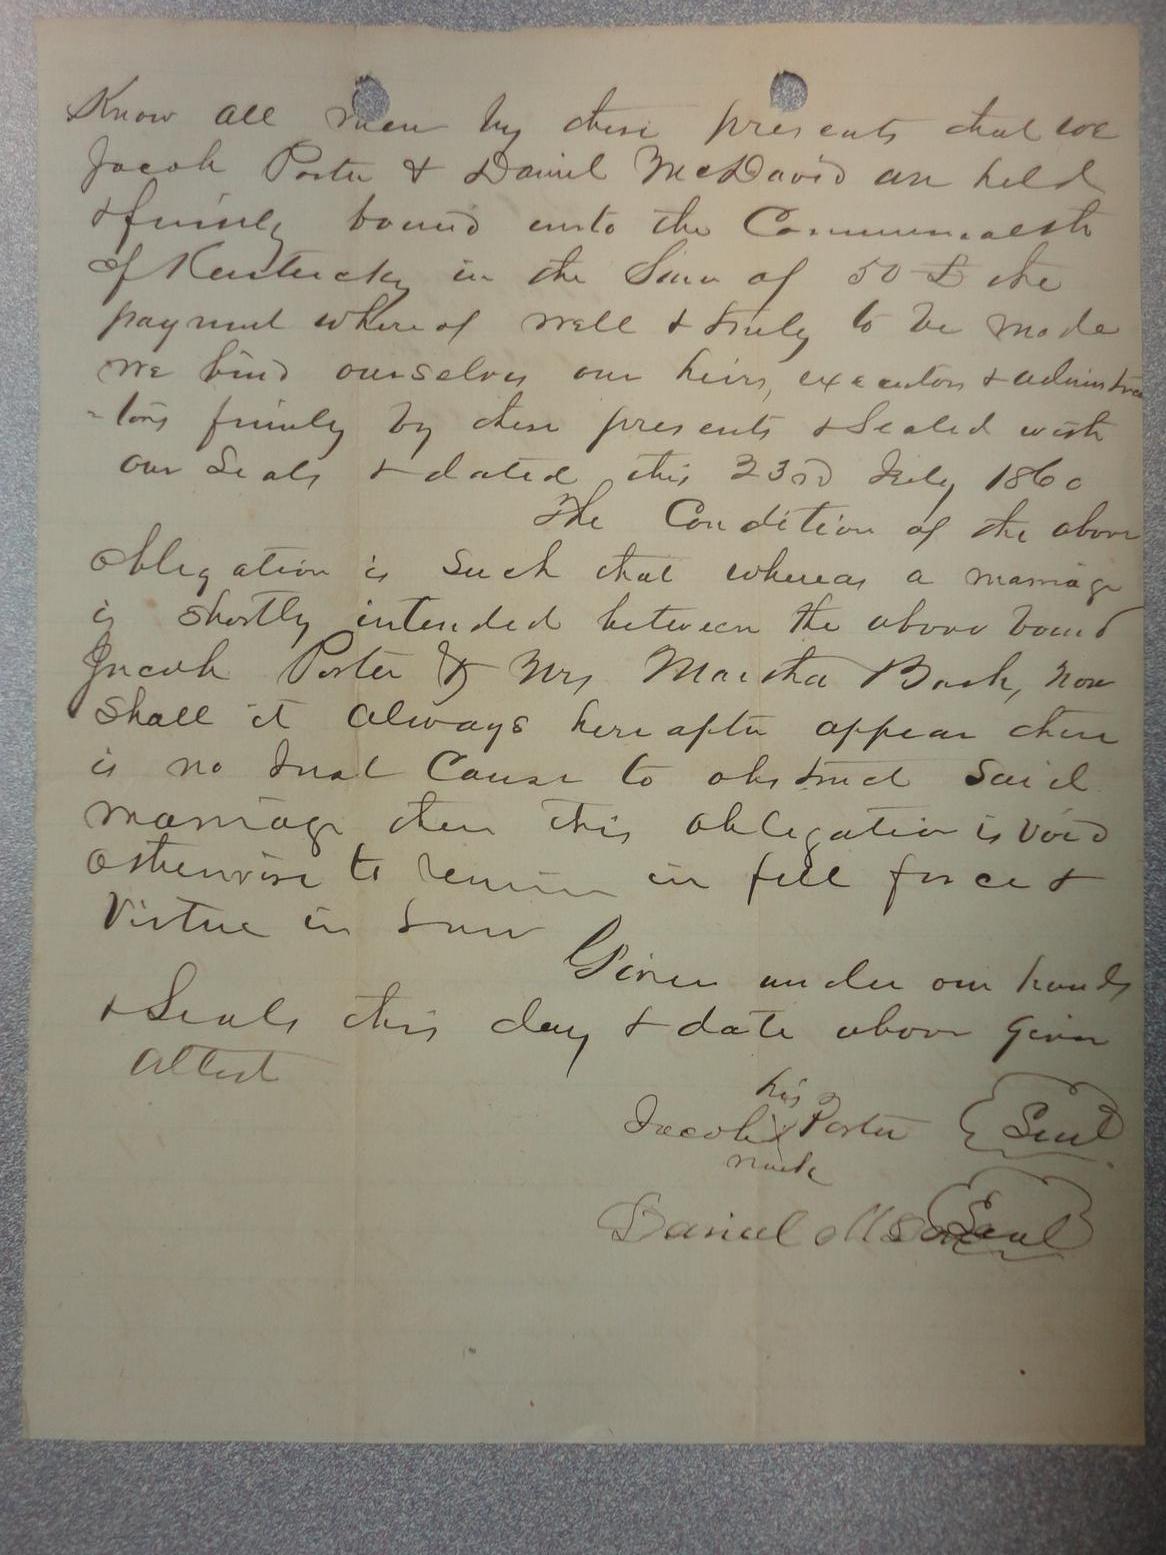 Know all men by these presents that we
Jacob Porter & Daniel McDavid are held
& firmly bound unto the Commonwealth
of Kentucky in the Sum of 50 £ the
payment where of well & truly to be made
we bind ourselves our heirs, executors & administra
-tors firmly by these presents & Sealed with
our Seals & dated this 23rd July 1860
The Condition of the above
obligation is Such that whereas a marriage
is shortly intended between the above bound
Jacob Porter & Mrs Martha Bush, now
Shall it always here after appear there
is no Just Cause to obstruct Said
marriage then this obligation is void
otherwise to remain in full force &
Virtue in Law
Given under our hands
& Seals this day & date above Given
Attest
his
Jacob X Porter Seal
mark
Daniel Seal